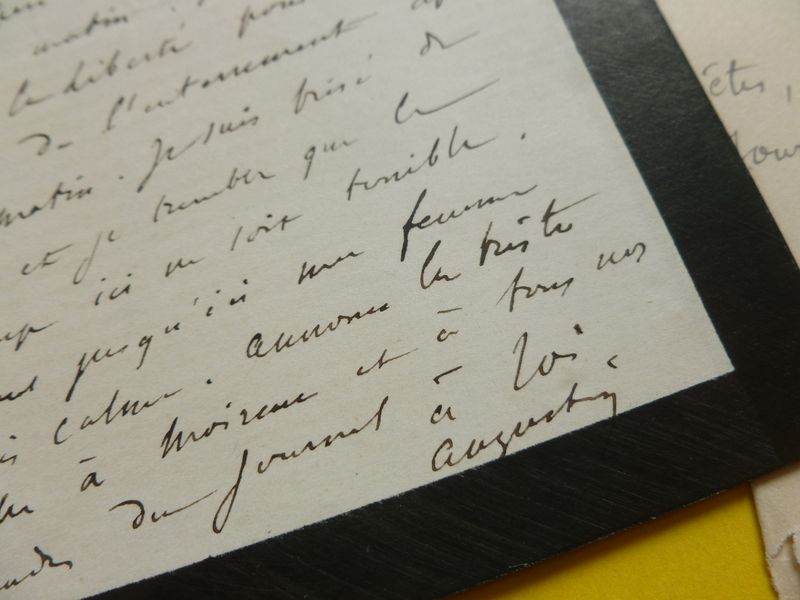 matin.
la liberté pour
de l'enterrement
matin. Je suis brisé de
et je trembler que le
ici ne soit terrible.
jusqu'ici ma femme
calme. Annonce la triste
à Moireau et à tous nos
du Journal à toi.
Augustin
êtes,
jour